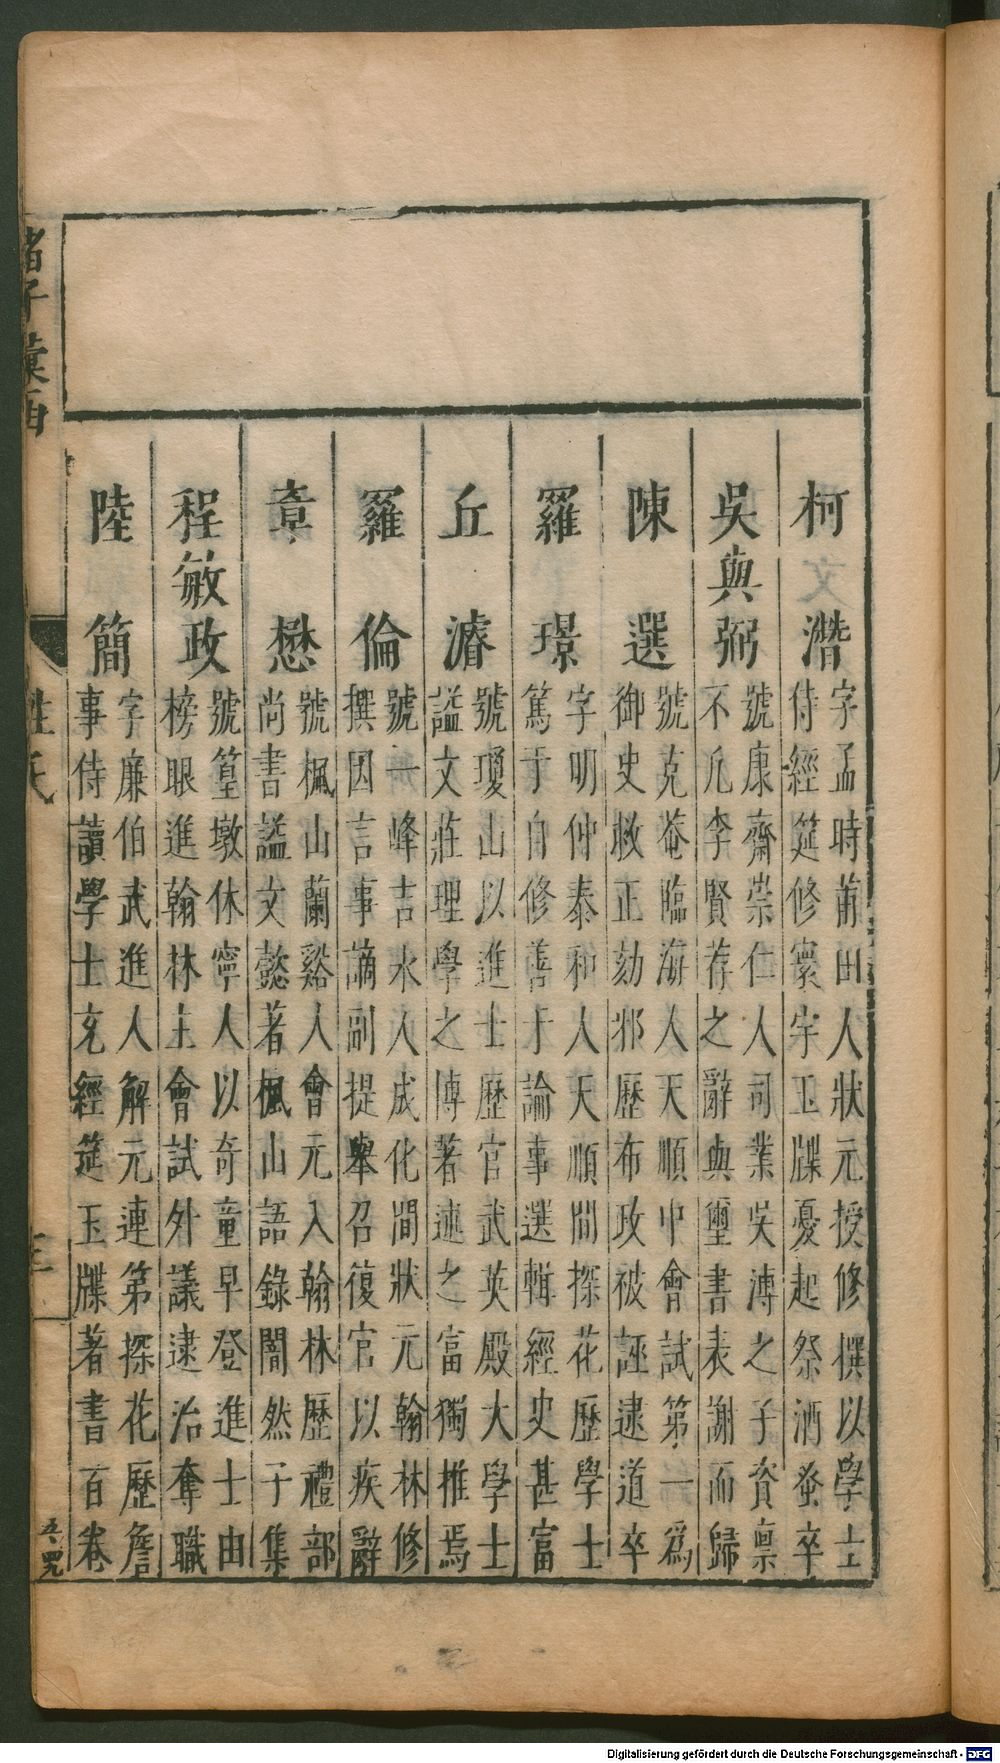 柯潛
字孟時莆田人狀元授修撰以學士
侍經筵修寰宇玉牒憂起祭酒蚤卒
吳與弼
號康齋崇仁人司業吳溥之子資稟
不凡李賢荐之辭與璽書表謝而歸
陳選
號克菴臨海人天順中會試第一爲
御史救正劾邪歷布政被誣逮道卒
羅璟
字明仲泰和人天順間探花歷學士
篤于自修善于論事選輯經史甚富
丘濬
號瓊山以進士歷官武英殿大學士
諡文莊理學之博著述之富獨推焉
羅倫
號一峰吉水人成化間狀元翰林修
撰因言事謫副提舉召復官以疾辭
章懋
號楓山蘭谿人會元入翰林歷禮部
尚書諡文懿著楓山語錄闇然子集
程敏政
號篁墩休寧人以奇童早登進士由
榜眼進翰林主會試外議逮治奪職
陸簡
字廉伯武進人解元連第探花歷詹
事侍讀學士充經筵玉牒著書百卷
諸子彙函
姓氏
Digitalisierung gefördert durch die Deutsche Forschungsgemeinschaft - DFG